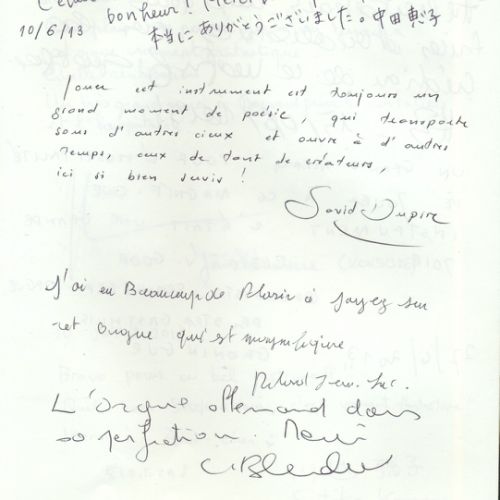 bonheur !
10/6/13 本当にありがとうございました。中田恵子
Jouer cet instrument est toujours un
grand moment de poésie, qui transporte
sous d'autres cieux et ouvre à d'autres
temps, ceux de tant de créateurs,
ici si bien servis !
David Dupire
J'ai eu Beaucoup de Plaisir à
cet Orgue qui est
L'Orgue allemand dans
sa perfection. Merci